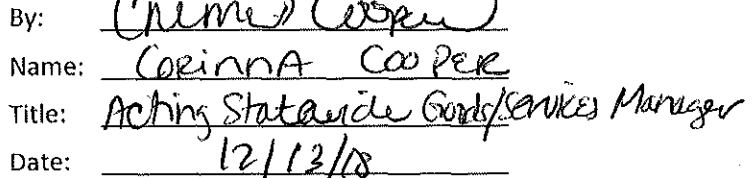 By: Cooper
Name: CORINNA COOPER
Title: Acting Statewide Goods/Services Manager
Date: 12/13/18